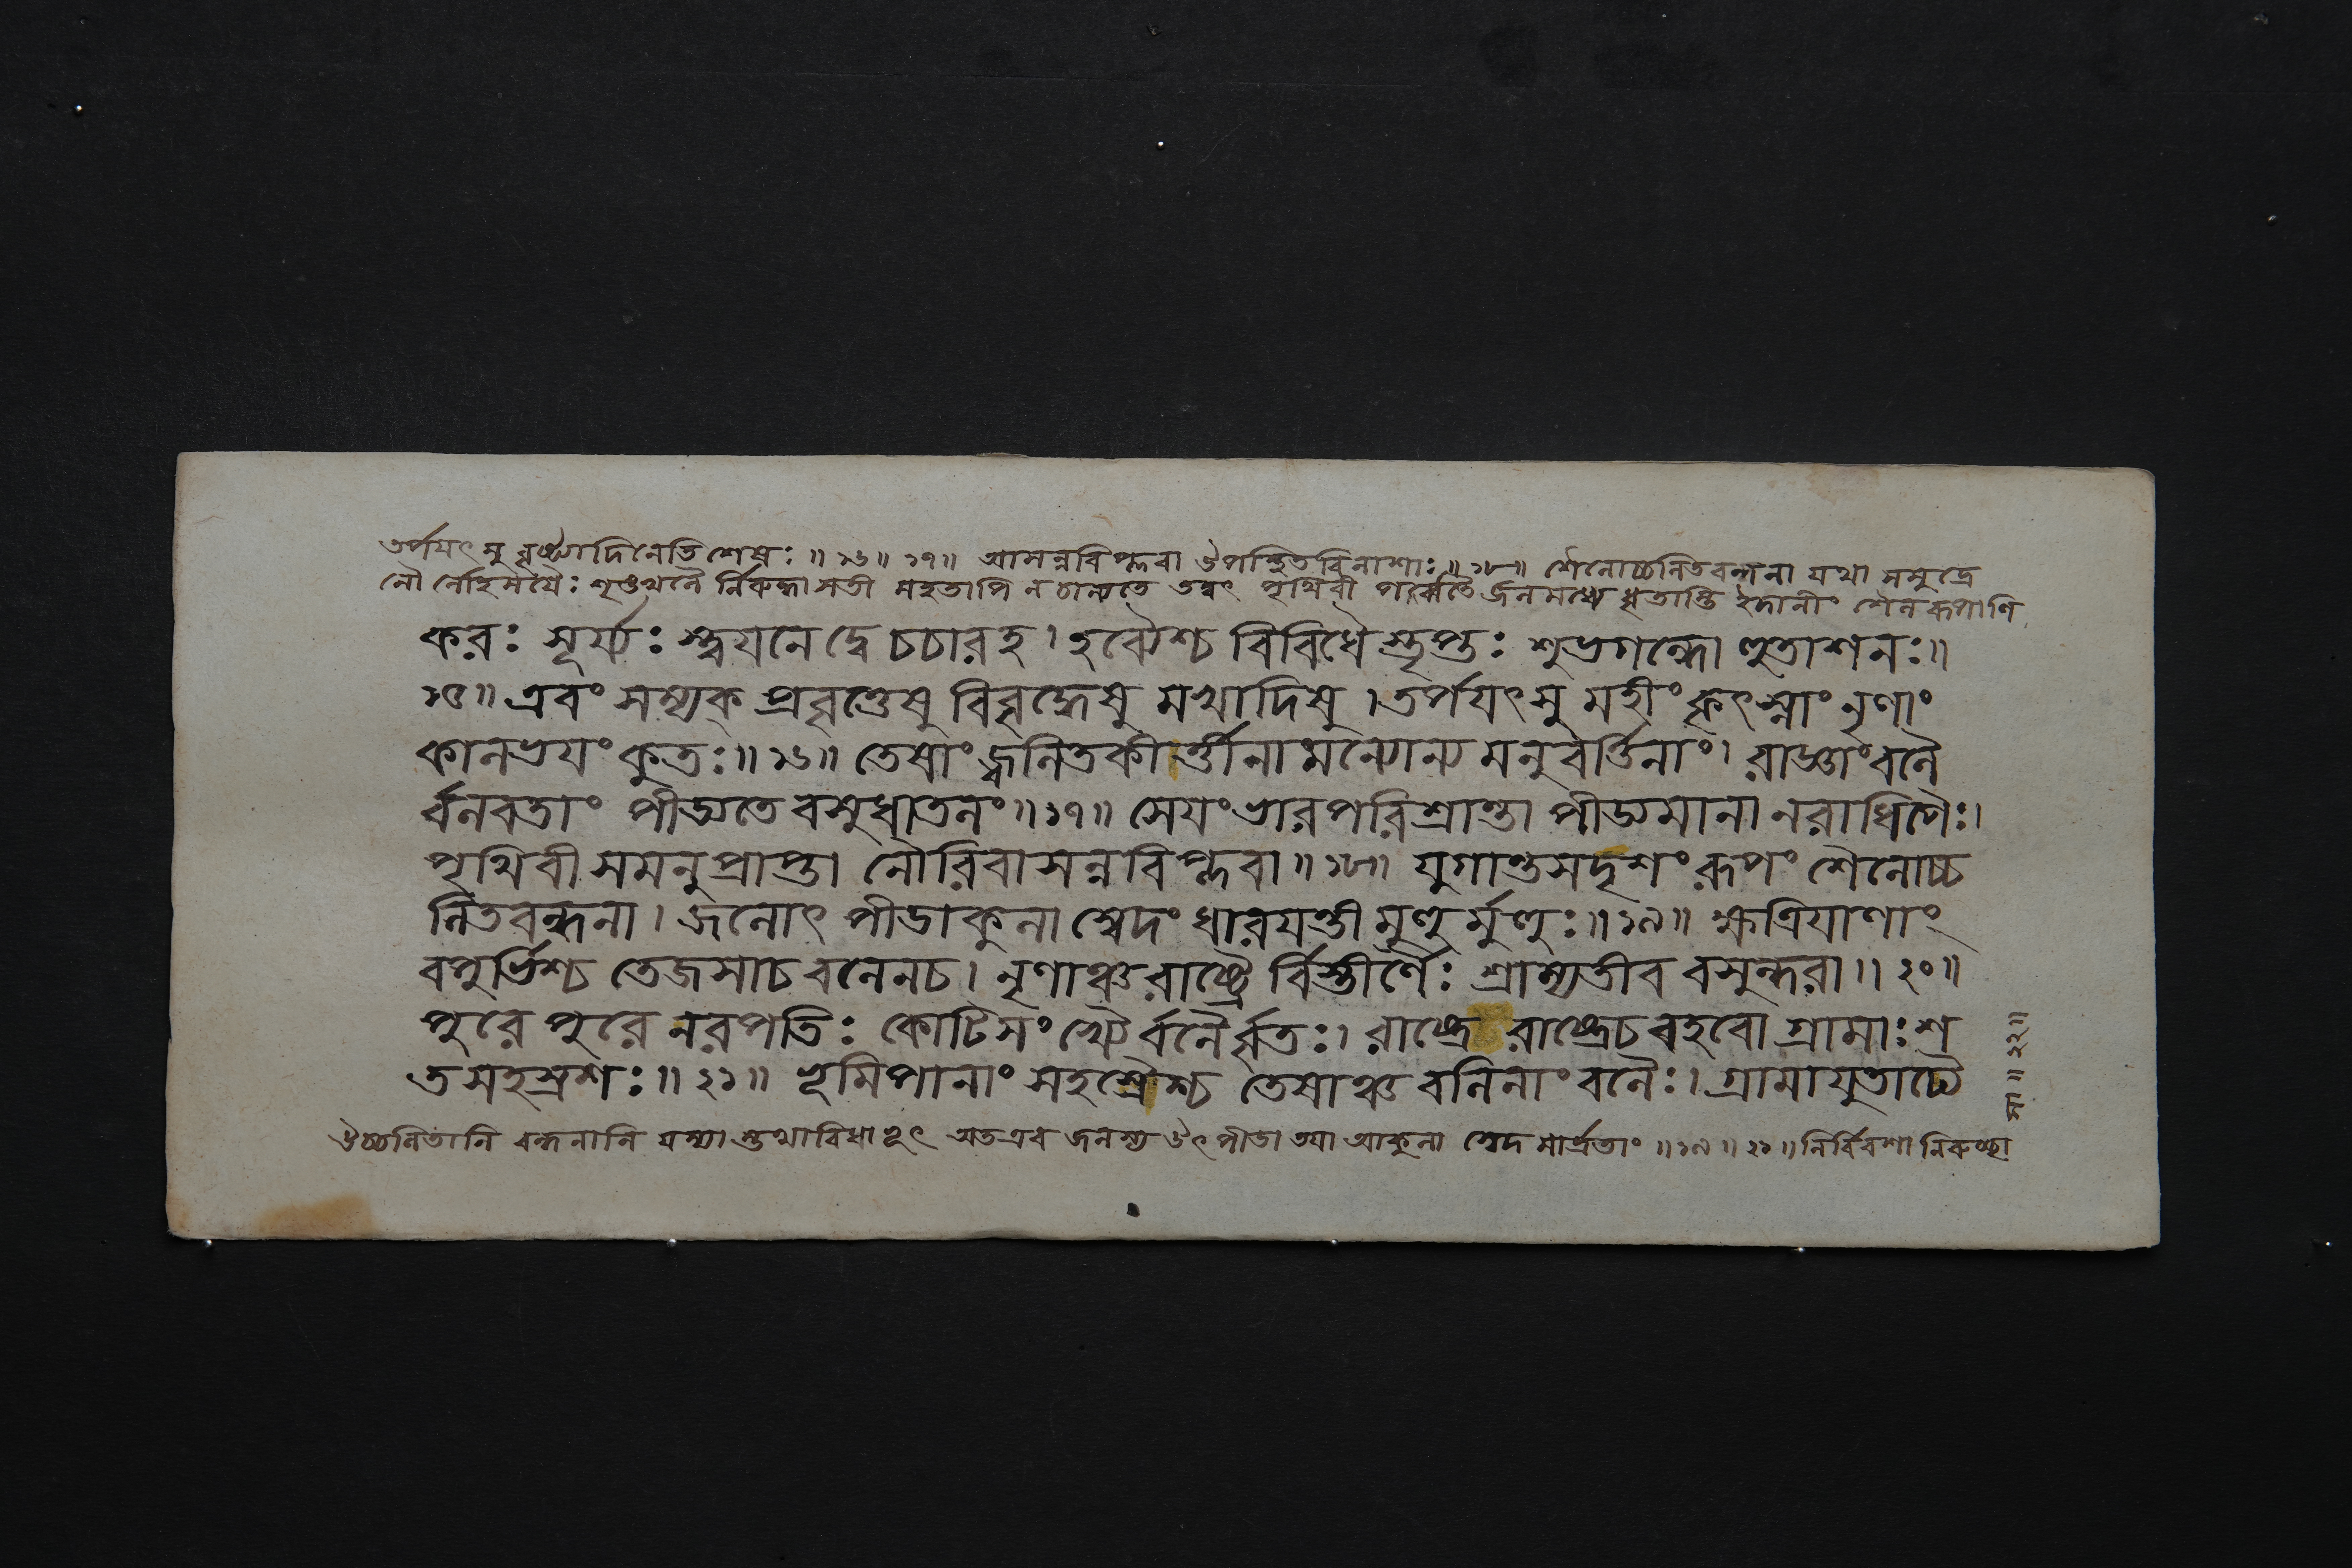 তর্পয়ৎসু বৃষ্ট্যাদিনেতি শেষঃ ॥ ১৬ ॥ ১৭ ॥ আসন্নবিপ্লবা উপস্থিতবিনাশাঃ ॥ ১৮ ॥ শৈলোচ্চলিতবন্ধনা যথা সমুদ্রে
নৌ র্লোহময়ৈঃ শৃঙ্খলৈ র্নিরুদ্ধা সতী মহতাপি ন চাল্যতে তদ্বৎ পৃথিবী পর্ব্বতৈ র্জলমধ্যে ধৃতাস্তি ইদানীং শৈলরূপাণি
করঃ সূর্য্যঃ স্বয়নে দ্বে চচার হ । হব্যৈশ্চ বিবিধৈ স্তৃপ্তঃ শুভগন্ধো হুতাশনঃ ॥
১৫ ॥ এবং সম্যক্ প্রবৃত্তেষু বিবৃদ্ধেষু মখাদিষু । তর্পয়ৎসু মহীং কৃৎস্নাং নৃণাং
কালভয়ং কুতঃ ॥ ১৬ ॥ তেষাং জ্বলিতকীর্ত্তীনামন্যোন্য মনুবর্ত্তিনাং । রাজ্ঞাং বলৈ
র্বলবতাং পীড্যতে বসুধাতলং ॥ ১৭ ॥ সেয়ং ভারপরিশ্রান্তা পীড্যমানা নরাধিপৈঃ ।
পৃথিবী সমনুপ্রাপ্তা নৌরিবাসন্নবিপ্লবা ॥ ১৮ ॥ যুগান্তসদৃশং রূপং শৈলোচ্চ
লিতবন্ধনা । জলোৎপীডাকুলা স্বেদং ধারয়ন্তী মুহুর্মুহুঃ ॥ ১৯ ॥ ক্ষত্রিয়াণাং
বপুর্ভিশ্চ তেজসা চ বলেন চ । নৃণাঞ্চ রাষ্ট্রৈ র্বিস্তীর্ণৈঃ শ্রাম্যতীব বসুন্ধরা ॥ ২০ ॥
পুরে পুরে নরপতিঃ কোটিসংখ্যৈ র্বলৈর্বৃতঃ । রাষ্ট্রে রাষ্ট্রে চ বহবো গ্রামাঃ শ
তসহস্রশঃ ॥ ২১ ॥ ভূমিপানাং সহস্রৈশ্চ তেষাঞ্চ বলিনাং বলৈঃ । গ্রামাযুতাঢ্যৈ
উচ্চলিতানি বন্ধনানি যস্যা স্তথাবিধাভূৎ অতএব জলস্য উৎপীডা তয়া আকুলা স্বেদ মার্দ্রতাং ॥ ১৯ ॥ ২১ ॥ নির্বিবশা নিরুচ্ছ্বা
সা ॥ ২২ ॥